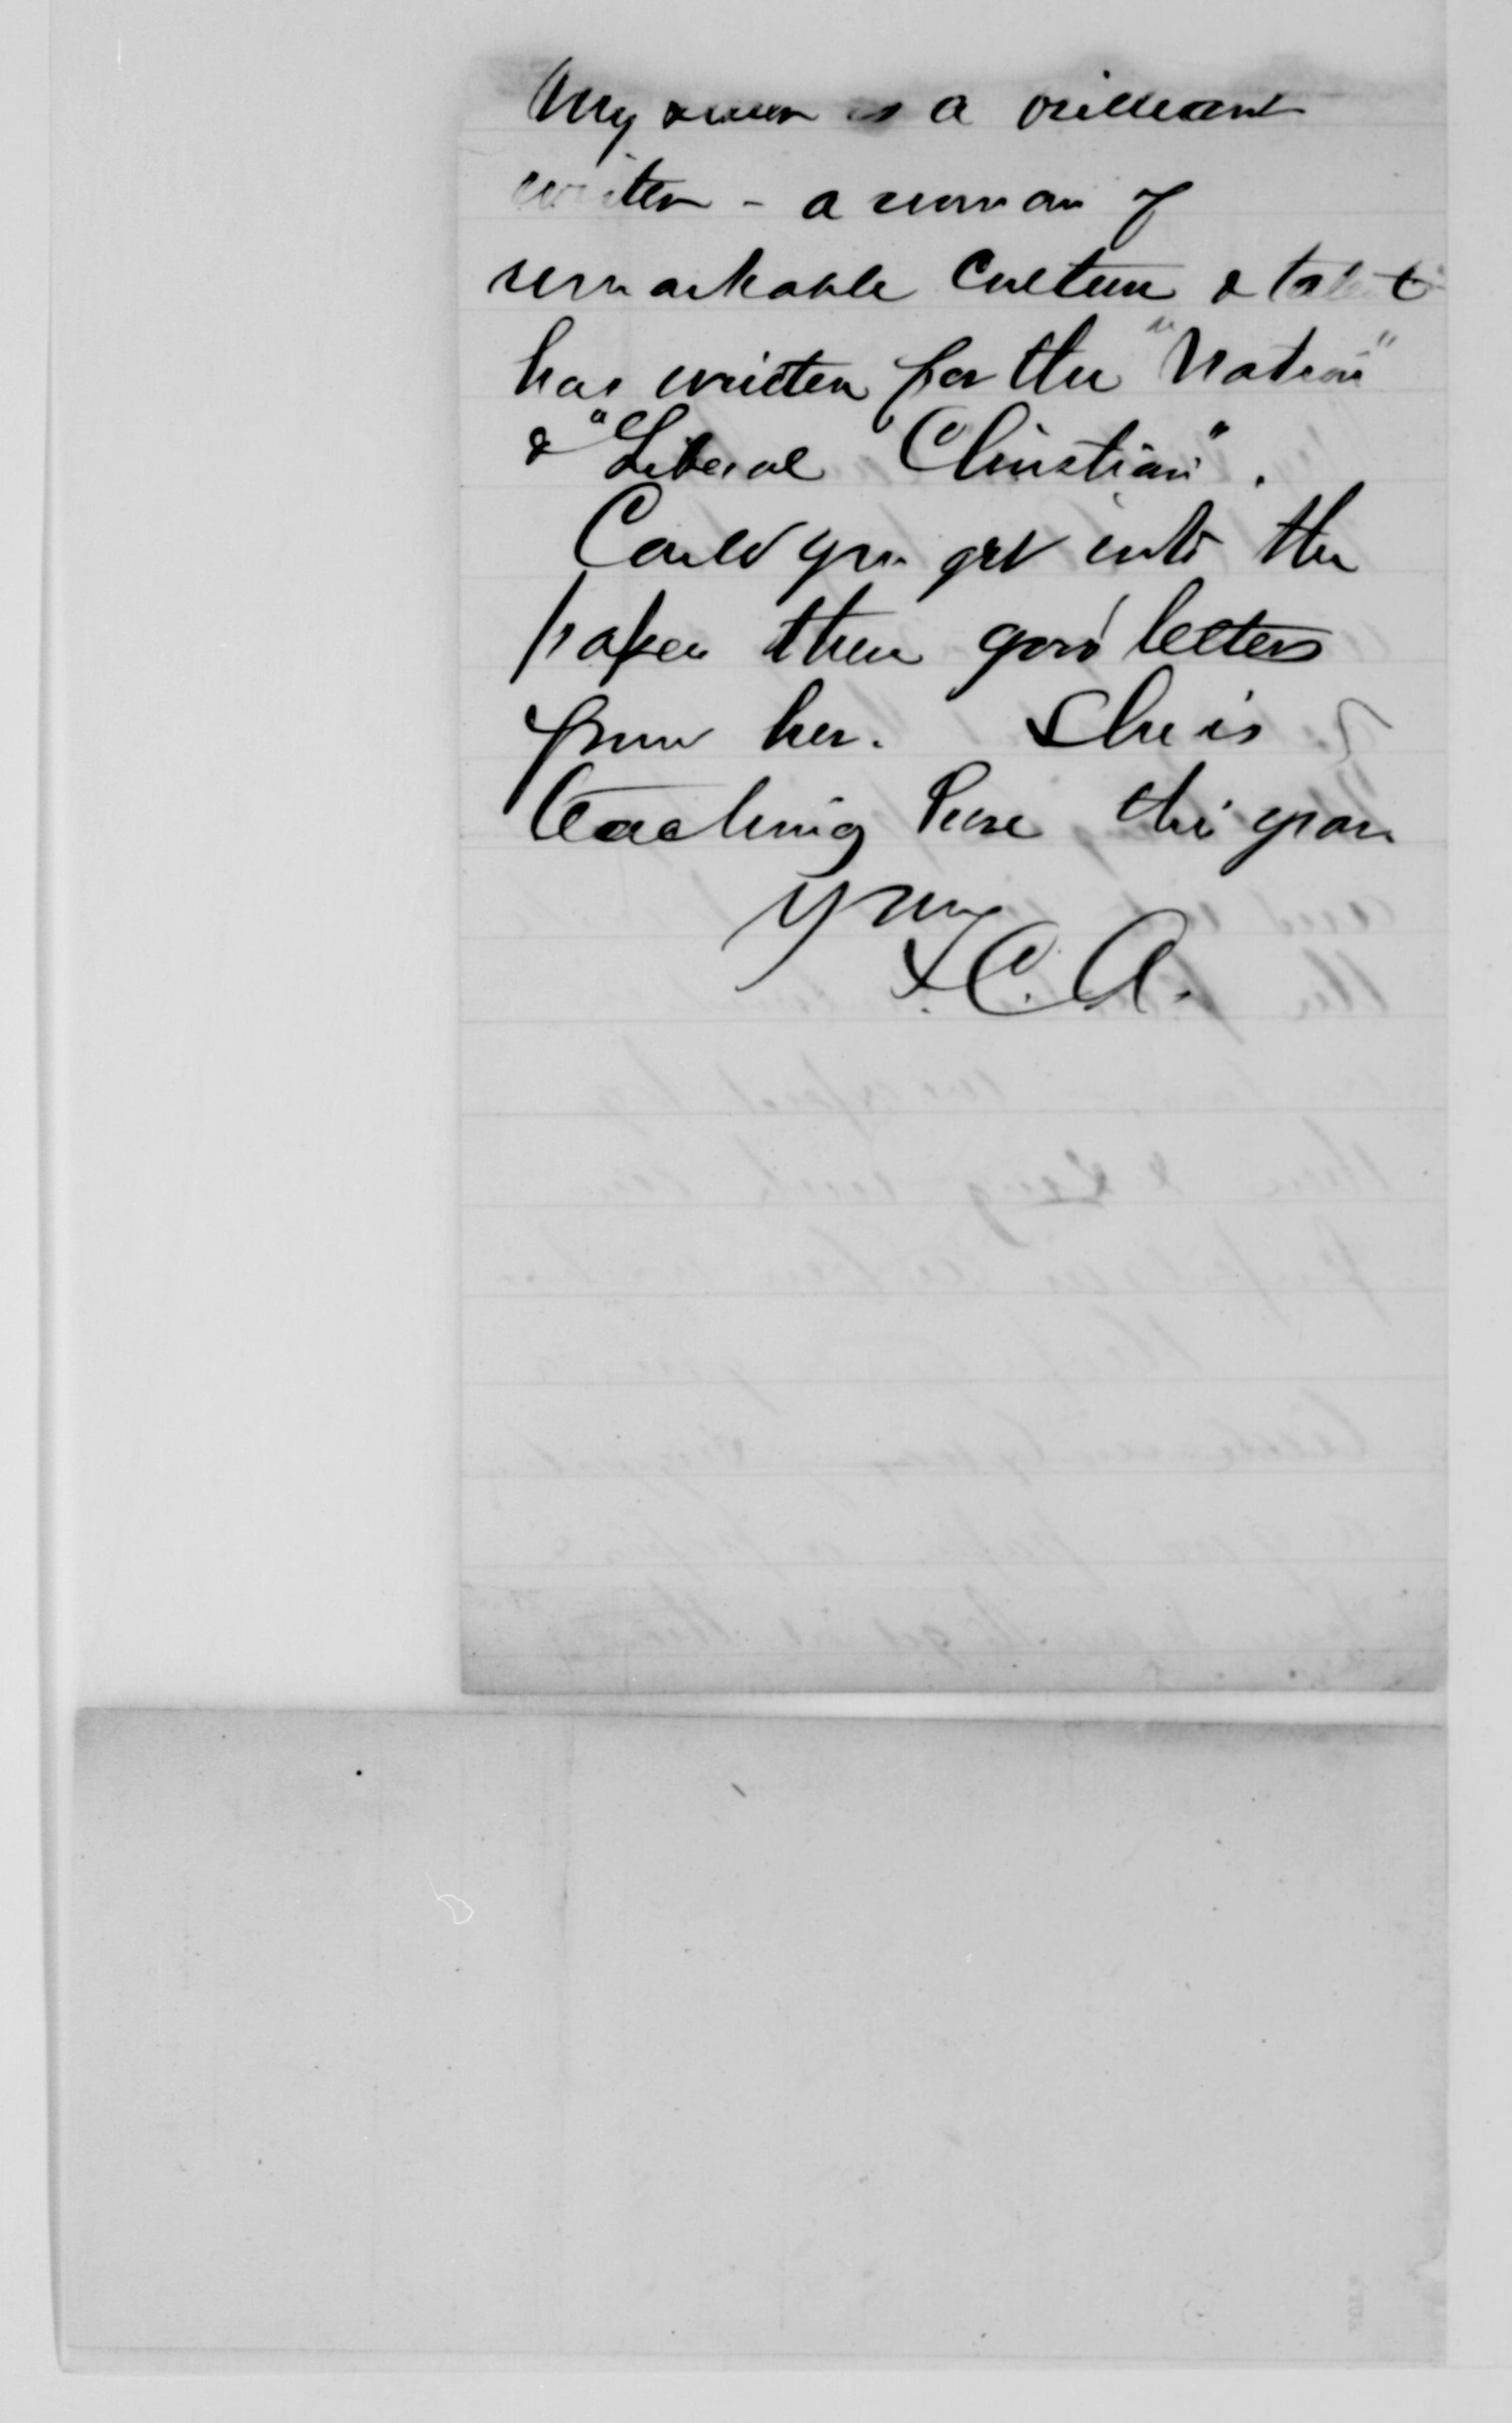 My sister is a brilliant
writer - a woman of
remarkable culture & talent
has written for the "Nation"
& "Liberal Christian".
Could you get into the
paper three good letters
from her. She is
teaching here this year
Yours
S. C. A.